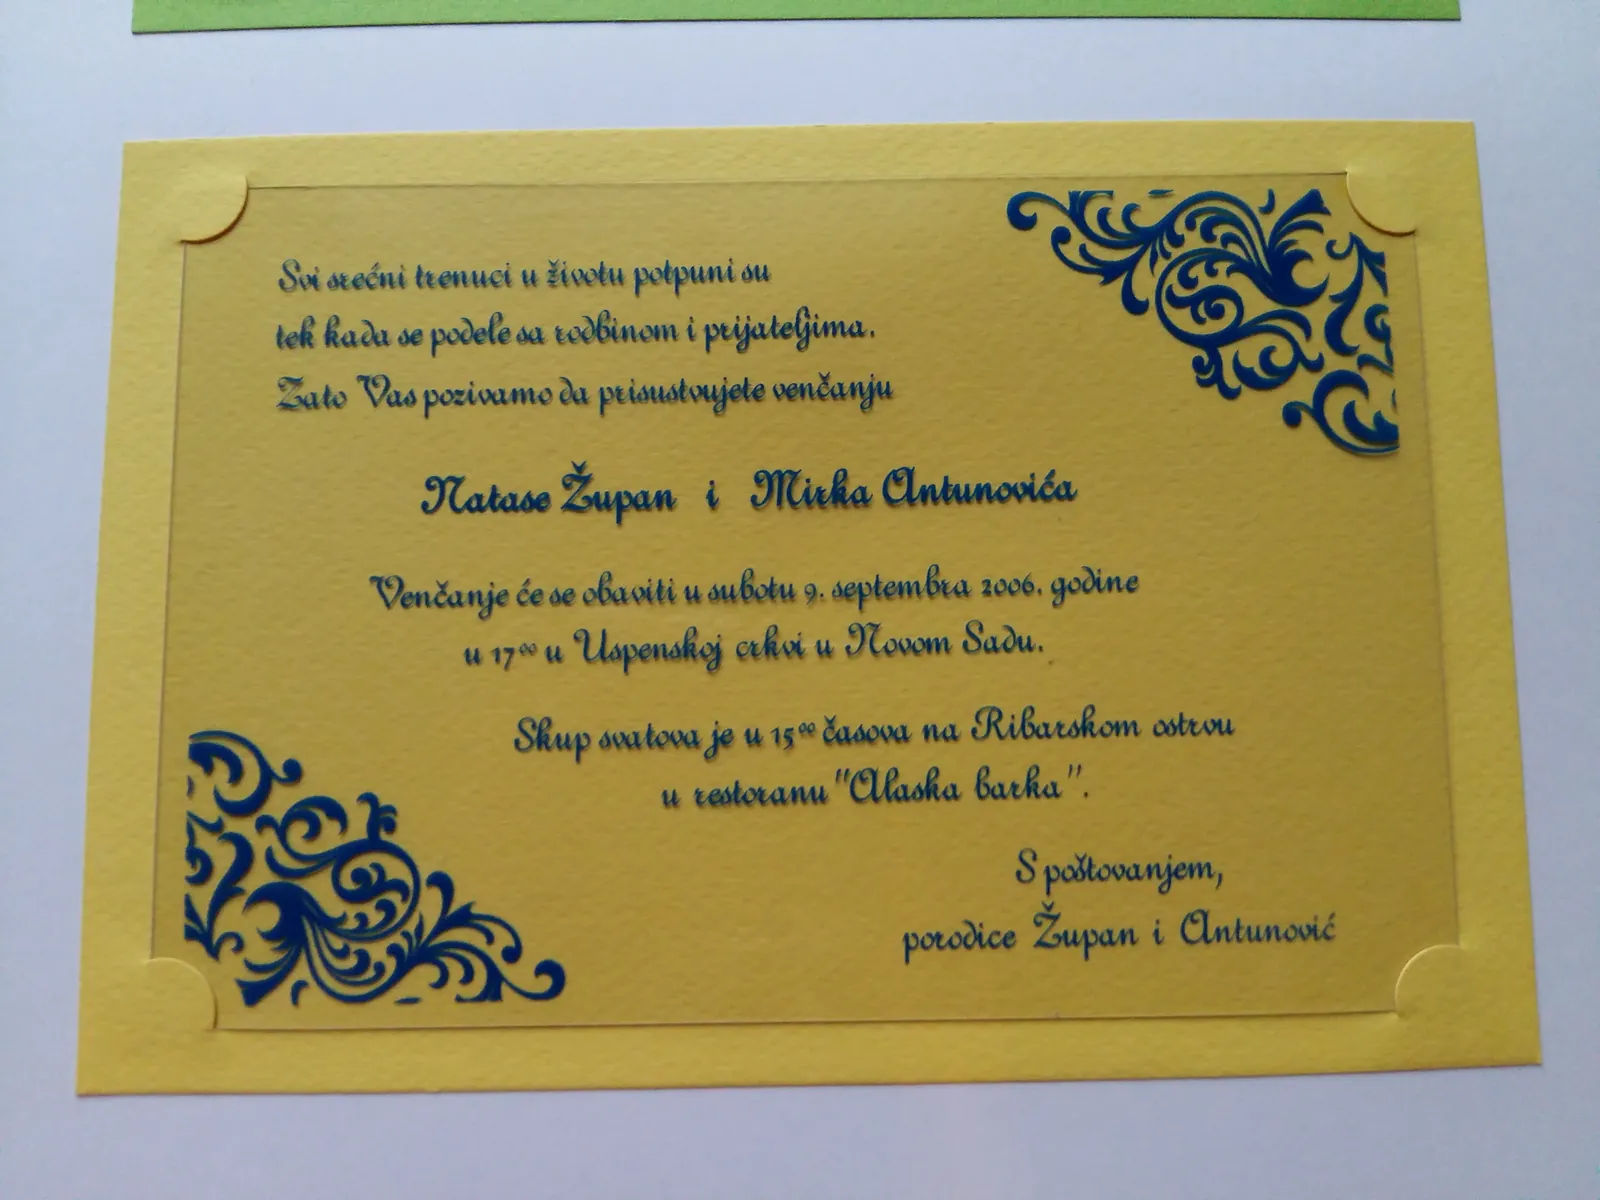 Svi srećni trenuci u životu potpuni su
tek kada se podele sa rodbinom i prijateljima.
Zato Vas pozivamo da prisustvujete venčanju
Natase Župan i Mirka Antunovića
Venčanje će se obaviti u subotu 9. septembra 2006. godine
u 17⁰⁰ u Uspenskoj crkvi u Novom Sadu.
Skup svatova je u 15⁰⁰ časova na Ribarskom ostrvu
u restoranu "Alaska barka".
S poštovanjem,
porodice Župan i Antunović